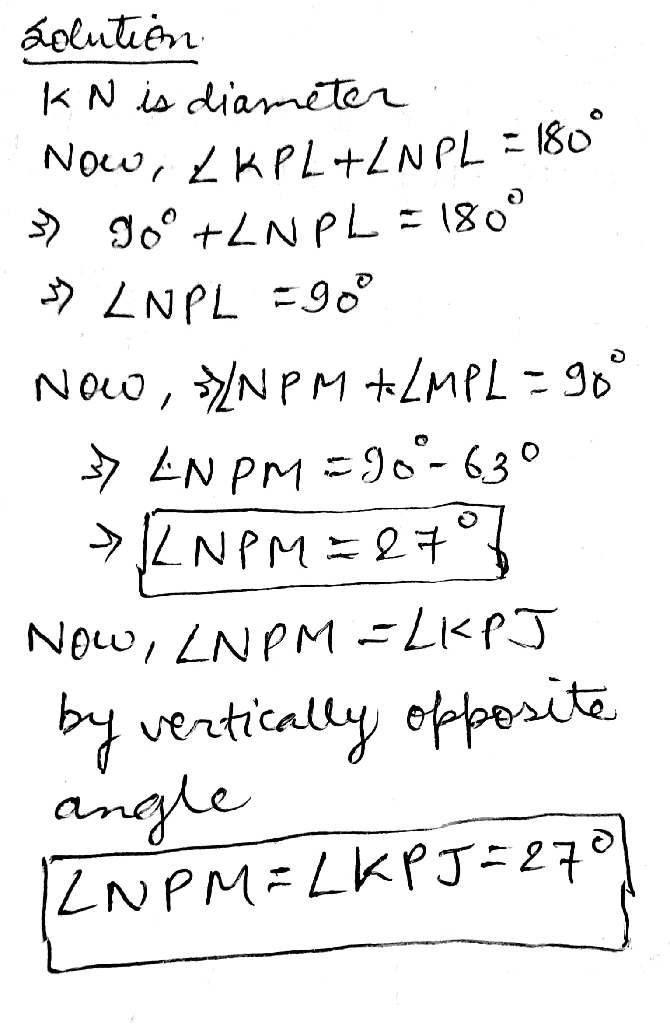 Solution
KN is diameter
Now, ∠KPL+∠NPL = 180°
⇒ 90° +∠NPL = 180°
⇒ ∠NPL = 90°
Now, ⇒∠NPM + ∠MPL = 90°
⇒ ∠NPM = 90° - 63°
⇒ ∠NPM = 27°
Now, ∠NPM = ∠KPJ
by vertically opposite
angle
∠NPM = ∠KPJ = 27°